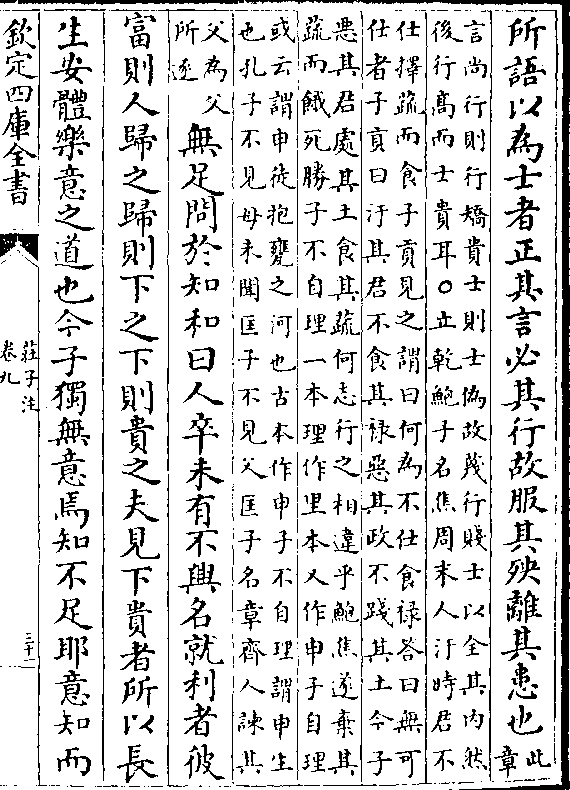 所語以為士者正其言必其行故服其殃離其患也此章
言尚行則行矯貴士則士偽故蔑行賤士以全其内然
後行髙而士貴耳○立乾鮑子名焦周末人汙時君不
仕擇蔬而食子貢見之謂曰何為不仕食禄答曰無可
仕者子貢曰汙其君不食其禄惡其政不踐其土今子
惡其君處其土食其蔬何志行之相違乎鮑焦遂棄其
蔬而餓死勝子不自理一本理作里本又作申子自理
或云謂申徒抱甕之河也古本作申子不自理謂申生
也孔子不見母未聞匡子不見父匡子名章齊人諫其
父為父
所逐
無足問於知和曰人卒未有不興名就利者彼
富則人歸之歸則下之下則貴之夫見下貴者所以長
生安體樂意之道也今子獨無意焉知不足耶意知而
欽定四庫全書
莊子注
卷九